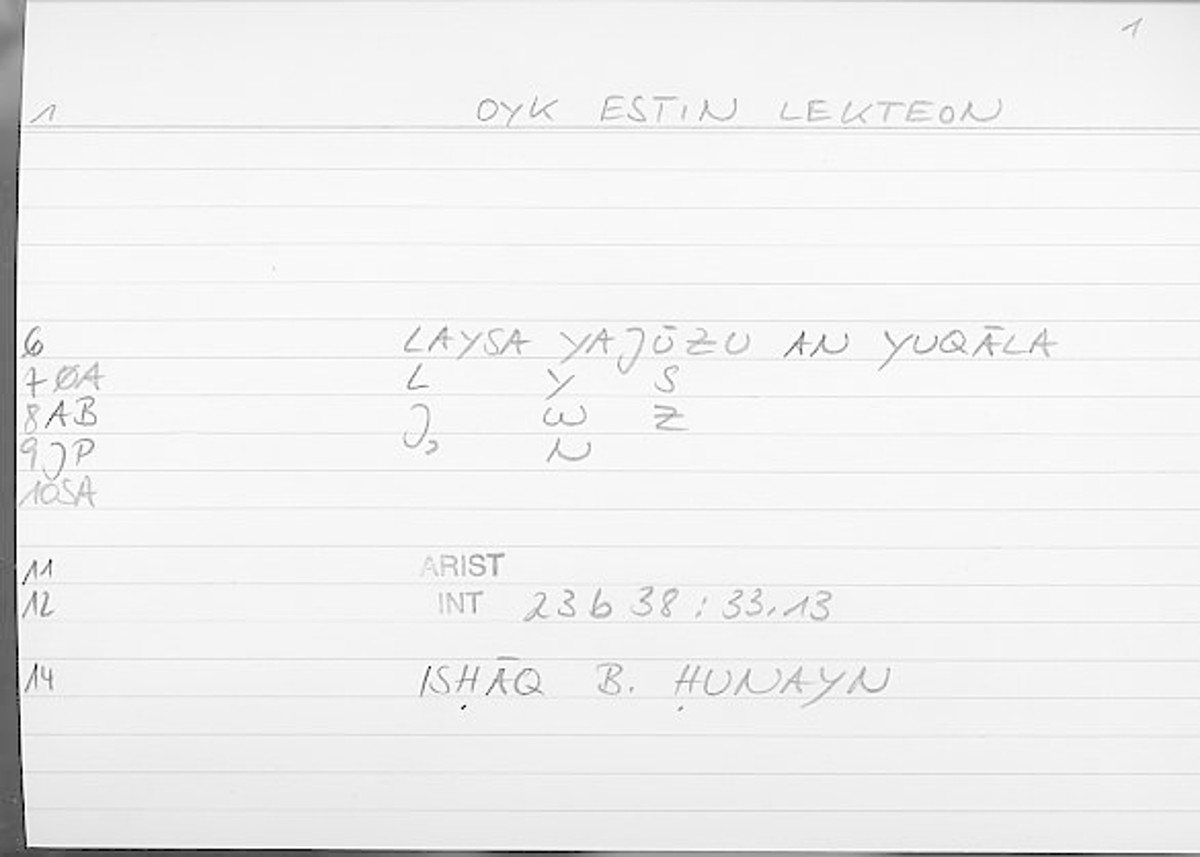 1
1 OYK ESTIN LEKTEON
6 LAYSA YAJŪZU AN YUQĀLA
7 ØA L Y S
8 AB J, W Z
9 JP N
10 SA
11 ARIST
12 INT 23b 38 : 33.13
14 ISḤĀQ B. ḤUNAYN